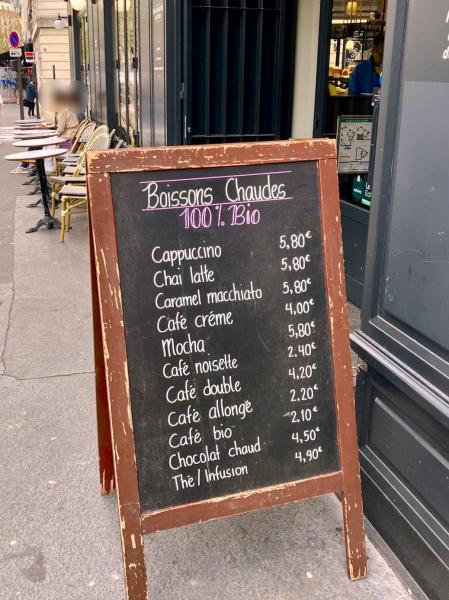 Boissons Chaudes
100% Bio
Cappuccino 5,80€
Chai latte 5,80€
Caramel macchiato 5,80€
Café créme 4,00€
Mocha 5,80€
Café noisette 2,40€
Café double 4,20€
Café allongé 2,20€
Café bio 2,10€
Chocolat chaud 4,50€
Thé / Infusion 4,90€